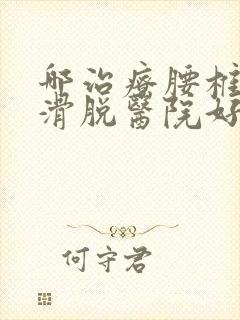 哪治疗腰椎
滑脱醫院好
何守君